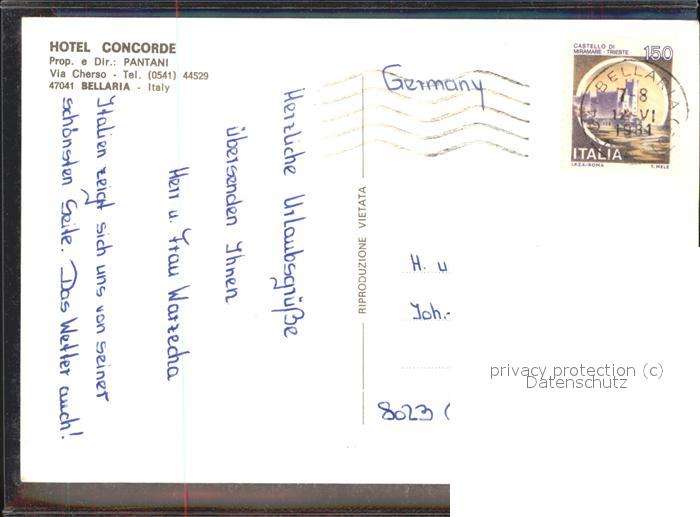 HOTEL CONCORDE
Prop. e Dir.: PANTANI
Via Cherso - Tel. (0541) 44529
47041 BELLARIA - Italy
Herzliche Urlaubsgrüße
übersenden Ihnen
Herr u. Frau Warzecha
Italien zeigt sich uns von seiner
schönsten Seite. Das Wetter auch!
RIPRODUZIONE VIETATA
Germany
CASTELLO DI
MIRAMARE - TRIESTE
150
BELLARIA
7-8
12 VI
1981
ITALIA
I.P.Z.S.-ROMA
E. MELE
H. u
Joh.-
8023 (
privacy protection (c)
Datenschutz